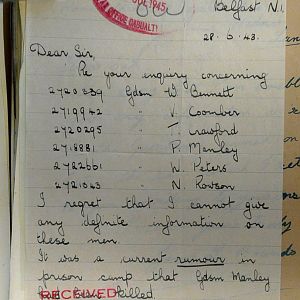 OFFICE CASUALTY
1945
Belfast N.I.
28.6.43.
Dear Sir,
Re your inquiry concerning
2720339 Gdsm W. Bennett
2719942 " V. Coomber
2720295 " T. Crawford
2718881 " P. Manley
2722661 " W. Peters
2721043 " N. Rowson
I regret that I cannot give
any definite information on
these men.
It was a current rumour in
prison camp that Gdsm Manley
had been killed.
RECEIVED